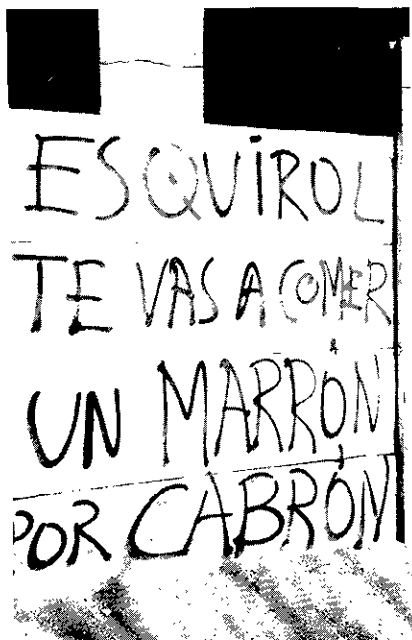 ESQUIROL
TE VAS A COMER
UN MARRÓN
POR CABRÓN